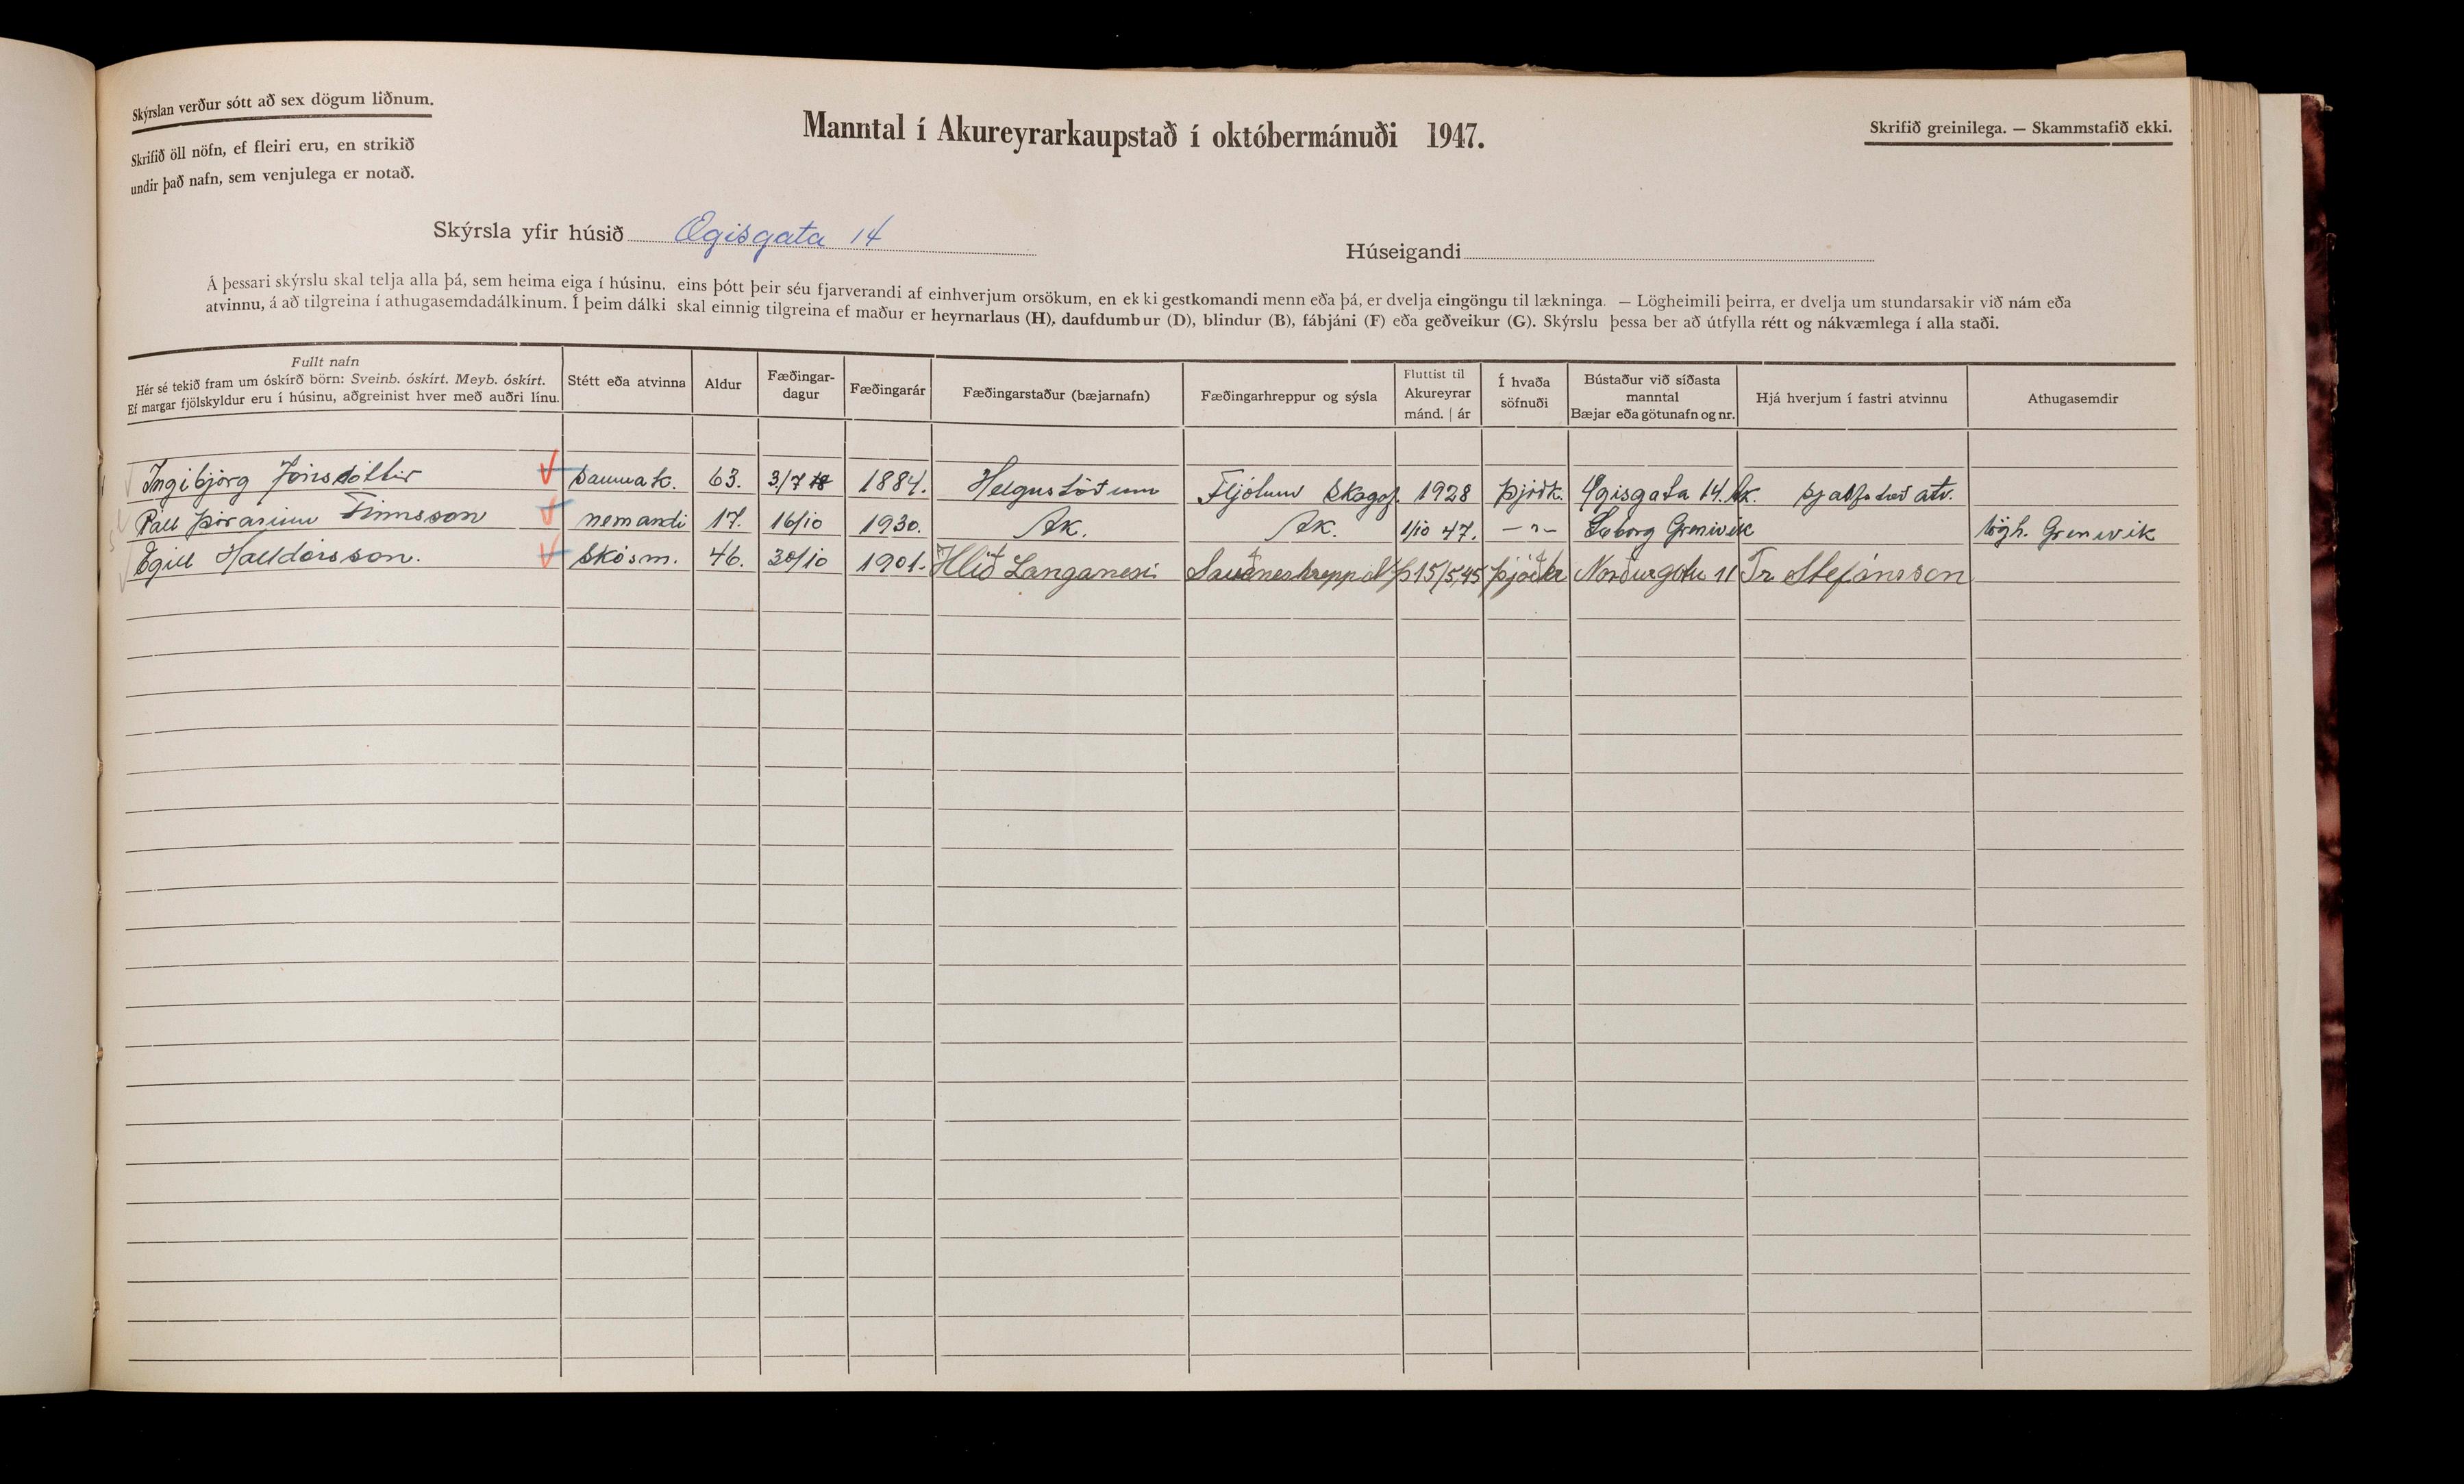 Skýrslan verður sótt að sex dögum liðnum.
Skrifið öll nöfn, ef fleiri eru, en strikið
undir það nafn, sem venjulega er notað.
Manntal í Akureyrarkaupstað í októbermánuði 1947.
Skrifið greinilega. — Skammstafið ekki.
Skýrsla yfir húsið Ægisgata 14
Húseigandi
Á þessari skýrslu skal telja alla þá, sem heima eiga í húsinu, eins þótt þeir séu fjarverandi af einhverjum orsökum, en ekki gestkomandi menn eða þá, er dvelja eingöngu til lækninga. — Lögheimili þeirra, er dvelja um stundarsakir við nám eða
atvinnu, á að tilgreina í athugasemdadálkinum. Í þeim dálki skal einnig tilgreina ef maður er heyrnarlaus (H), daufdumbur (D), blindur (B), fábjáni (F) eða geðveikur (G). Skýrslu þessa ber að útfylla rétt og nákvæmlega í alla staði.
Fullt nafn
Hér sé tekið fram um óskírð börn: Sveinb. óskírt. Meyb. óskírt.
Ef margar fjölskyldur eru í húsinu, aðgreinist hver með auðri línu.
Stétt eða atvinna
Aldur
Fæðingar-
dagur
Fæðingarár
Fæðingarstaður (bæjarnafn)
Fæðingarhreppur og sýsla
Fluttist til
Akureyrar
mánd. | ár
Í hvaða
söfnuði
Bústaður við síðasta
manntal
Bæjar eða götunafn og nr.
Hjá hverjum í fastri atvinnu
Athugasemdir
Ingibjörg Jónsdóttir saumak. 63. 3/7 1884. Helgustöðum Fljótum Skagaf. 1928 þjóðk. Ægisgata 14. Ak. atv.
Páll Þórarinn Finnsson nemandi 17. 16/10 1930. Ak. Ak. 1/10 47. —"— Grenivík lögh. Grenivik
Egill Halldórsson. Skósm. 46. 30/10 1901. Hlíð Langanesi Sauðneshrepp 15/5,45 þjóðk Norðurgötu 11 Tr. Stefánsson